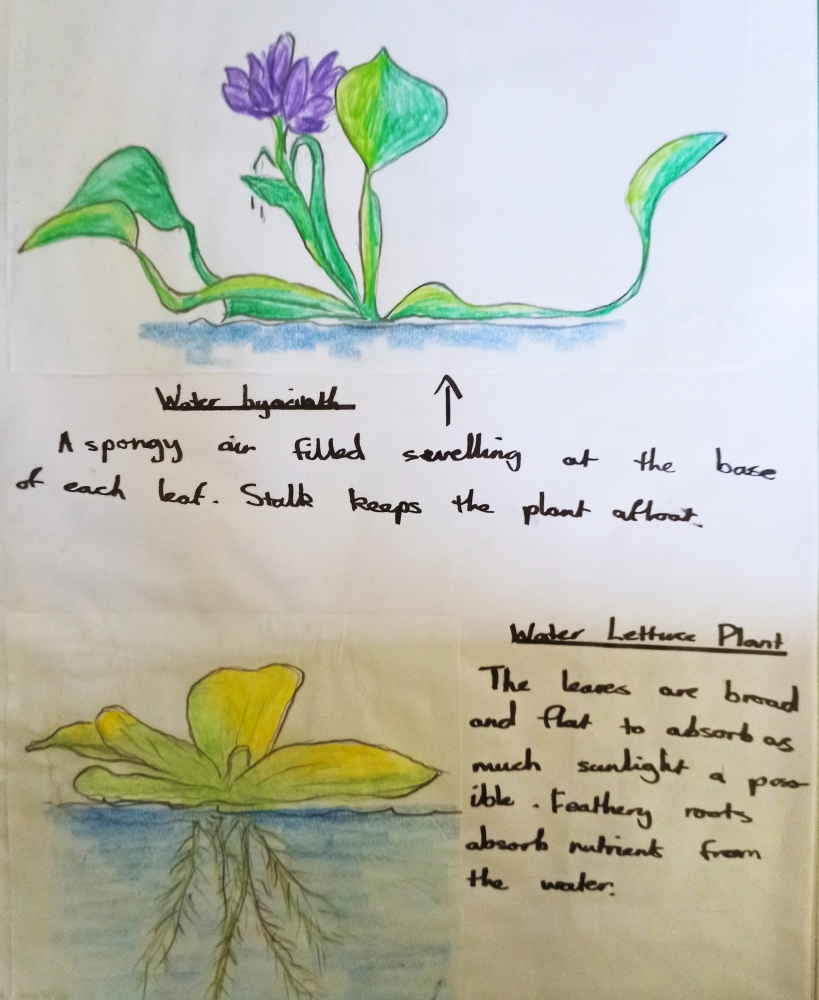 Water hyacinth
A spongy air filled swelling at the base
of each leaf. Stalk keeps the plant afloat.
Water Lettuce Plant
The leaves are broad
and flat to absorb as
much sunlight a poss
ible. Feathery roots
absorb nutrients from
the water.